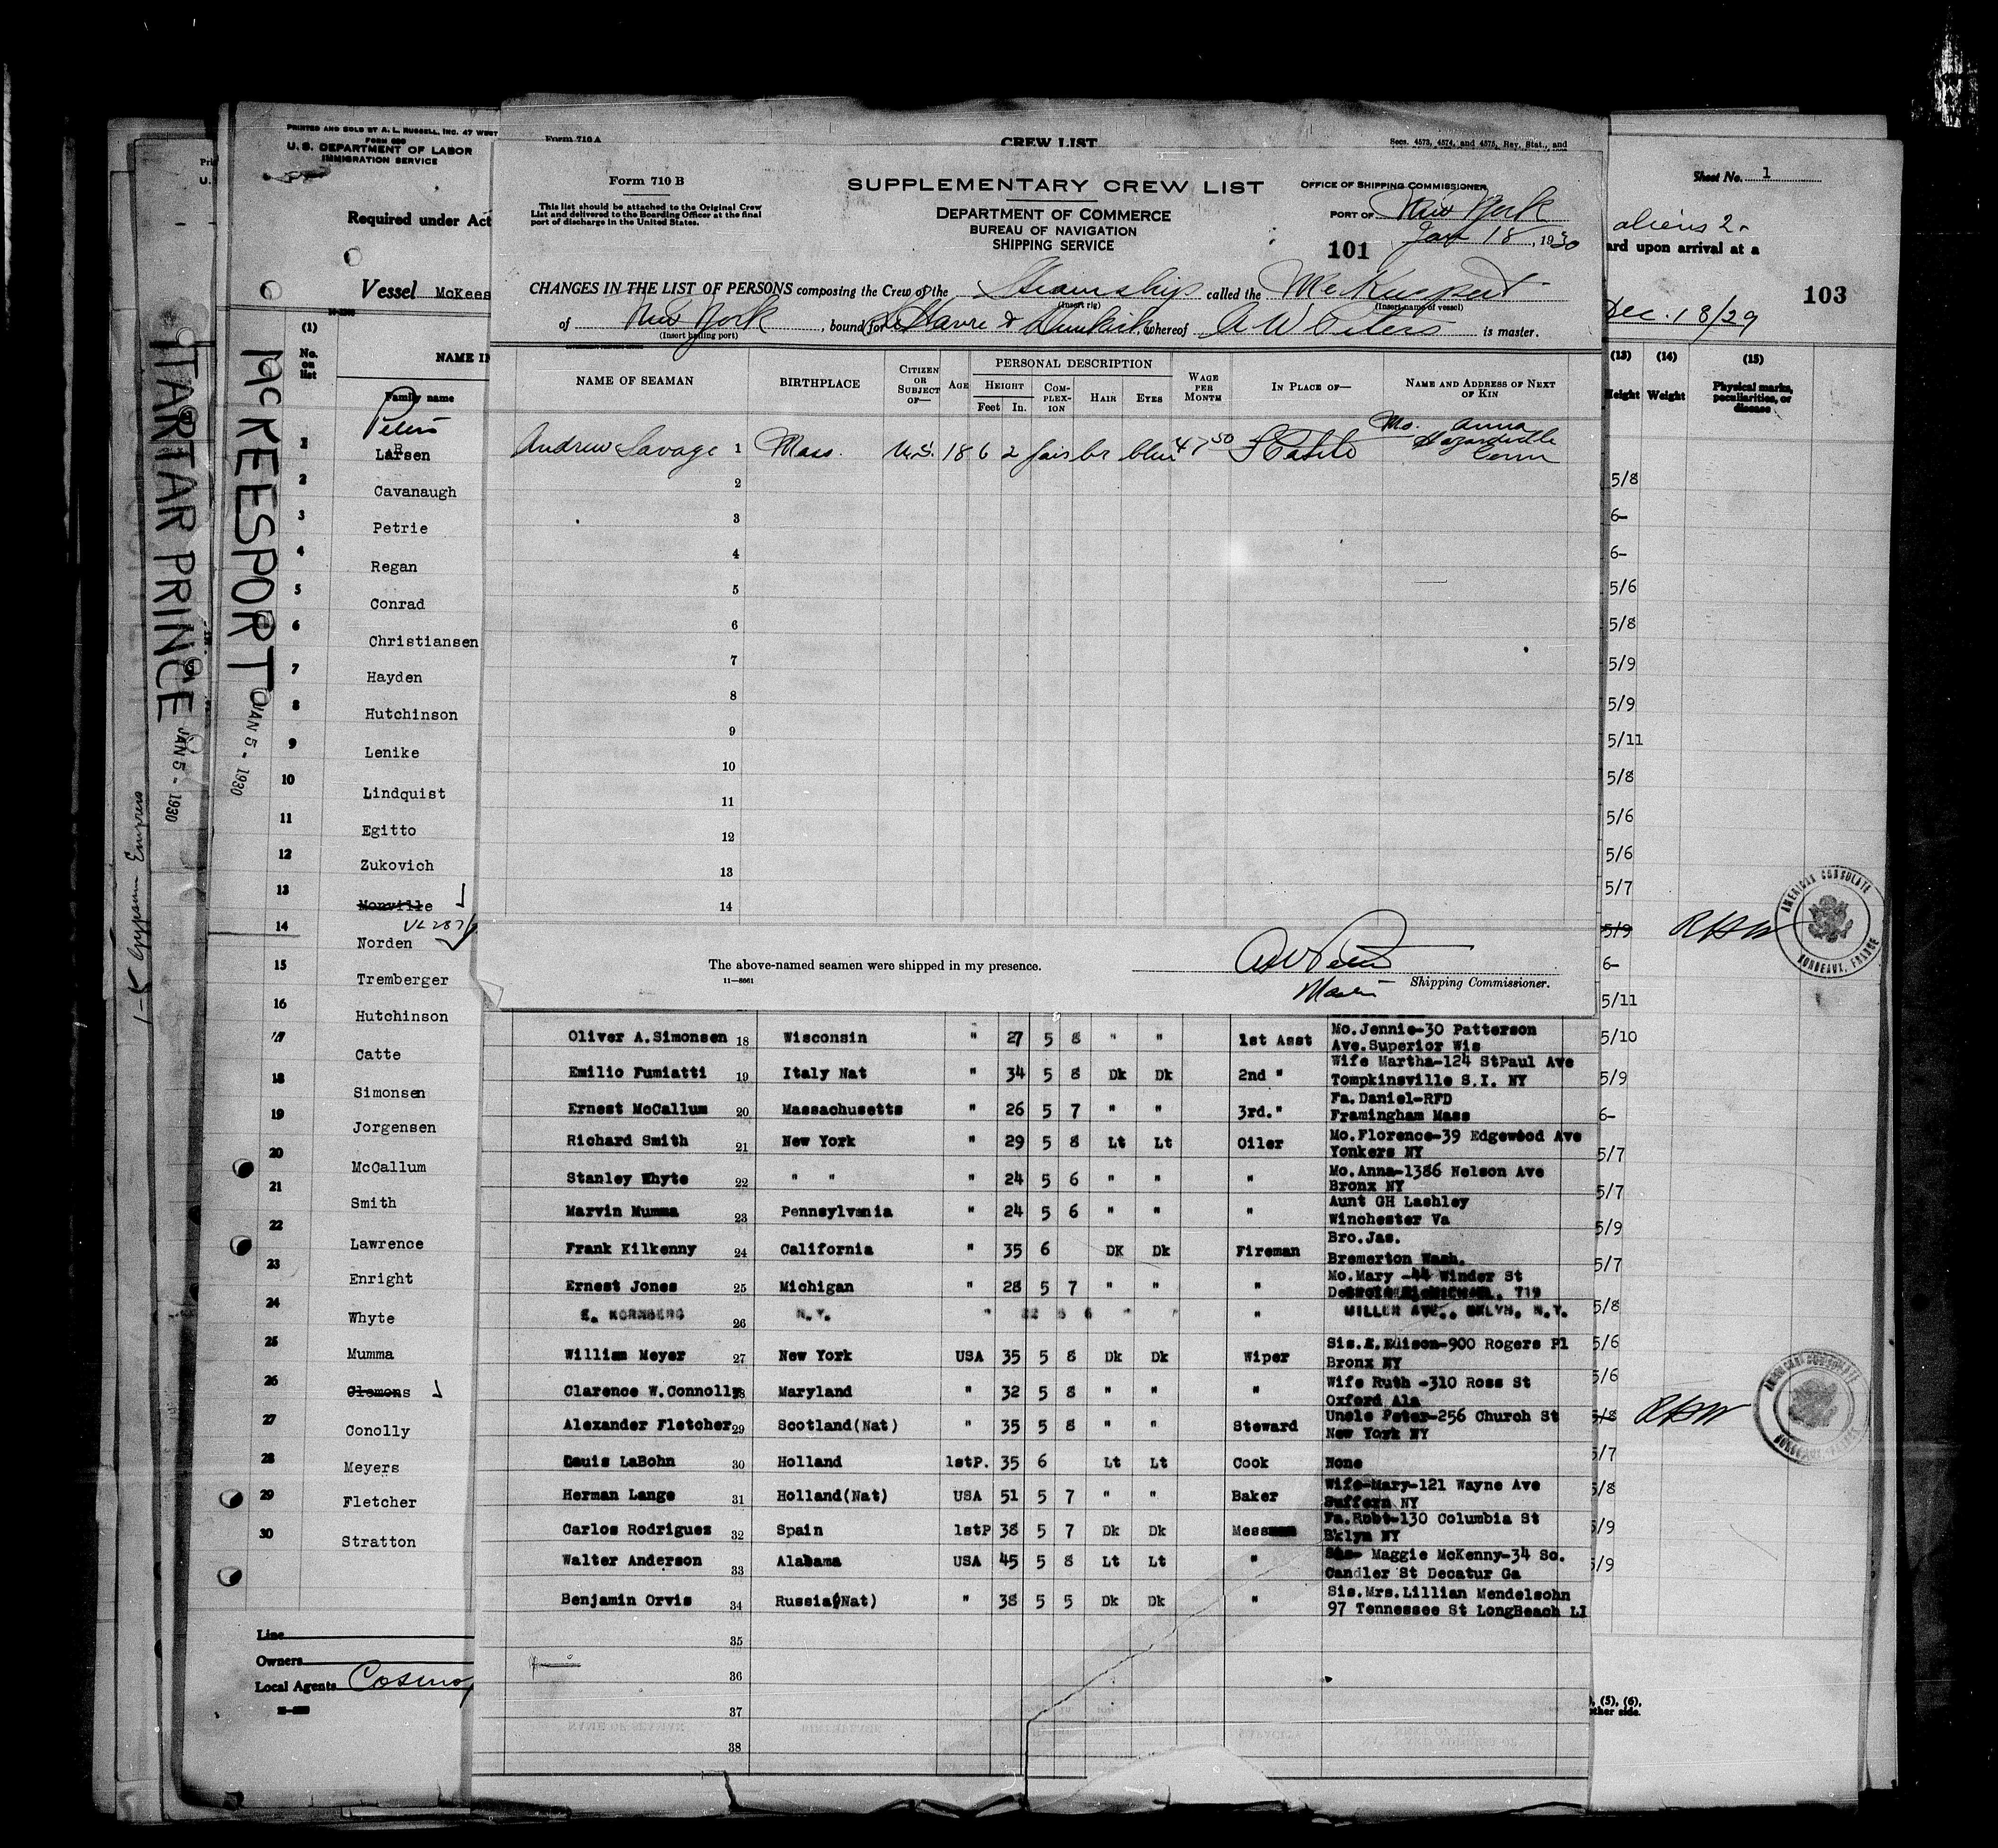 PRINTED AND SOLD BY A. L. RUSSELL, INC. 47 WEST
U. S. DEPARTMENT OF LABOR
IMMIGRATION SERVICE
Required under Act
Vessel McKees
(1)
No. on list
NAME IN
Family name
Peters
1 Larsen
2 Cavanaugh
3 Petrie
4 Regan
5 Conrad
6 Christiansen
7 Hayden
8 Hutchinson
9 Lenike
10 Lindquist
11 Egitto
12 Zukovich
13 Monville
14 Norden
15 Tremberger
16 Hutchinson
17 Catte
18 Simonsen
19 Jorgensen
20 McCallum
21 Smith
22 Lawrence
23 Enright
24 Whyte
25 Mumma
26 Clemons
27 Conolly
28 Meyers
29 Fletcher
30 Stratton
Line
Owners
Local Agents
TARTAR PRINCE JAN 5 - 1930
McKEESPORT JAN 5 - 1930
1-5 Gypsum Empress
Form 710 A
CREW LIST
Secs. 4573, 4574, and 4575, Rev. Stat., and
Form 710 B
This list should be attached to the Original Crew
List and delivered to the Boarding Officer at the final
port of discharge in the United States.
SUPPLEMENTARY CREW LIST
DEPARTMENT OF COMMERCE
BUREAU OF NAVIGATION
SHIPPING SERVICE
OFFICE OF SHIPPING COMMISSIONER,
PORT OF New York
101
Jan 18, 1930
CHANGES IN THE LIST OF PERSONS composing the Crew of the Steamship called the McKeesport
(Insert rig) (Insert name of vessel)
of New York, bound for Havre & Dunkirk whereof A W Peters is master.
(Insert hailing port)
NAME OF SEAMAN BIRTHPLACE CITIZEN OR SUBJECT OF— AGE PERSONAL DESCRIPTION HEIGHT Feet In. COMPLEXION HAIR EYES WAGE PER MONTH IN PLACE OF— NAME AND ADDRESS OF NEXT OF KIN
Andrew Savage 1 Mass. U.S. 18 6 2 fair br blue 47 50 Mo. Anna
Hazardville
Conn
2
3
4
5
6
7
8
9
10
11
12
13
14
The above-named seamen were shipped in my presence.
11—8661
A W Peters
Master Shipping Commissioner.
Oliver A.Simonsen 18 Wisconsin " 27 5 8 " " 1st Asst Mo.Jennie-30 Patterson
Ave.Superior Wis
Emilio Fumiatti 19 Italy Nat " 34 5 8 Dk Dk 2nd " Wife Martha-124 StPaul Ave
Tompkinsville S.I. NY
Ernest McCallum 20 Massachusetts " 26 5 7 " " 3rd." Fa.Daniel-RFD
Framingham Mass
Richard Smith 21 New York " 29 5 8 Lt Lt Oiler Mo.Florence-39 Edgewood Ave
Yonkers NY
Stanley Whyte 22 " " " 24 5 6 " " " Mo.Anna-1386 Nelson Ave
Bronx NY
Marvin Mumma 23 Pennsylvania " 24 5 6 " " " Aunt GH Lashley
Winchester Va
Frank Kilkenny 24 California " 35 6 DK Dk Fireman Bro.Jas.
Bremerton Wash.
Ernest Jones 25 Michigan " 28 5 7 " " " Mo.Mary -44 Winder St
719
E. KORNBERG 26 N.Y. " 22 5 6 " " " MILLER AVE., BKLYN, N.Y.
William Meyer 27 New York USA 35 5 8 Dk Dk Wiper Sis.E.Edison-900 Rogers Pl
Bronx NY
Clarence W.Connolly 28 Maryland " 32 5 8 " " " Wife Ruth -310 Ross St
Oxford Ala
Alexander Fletcher 29 Scotland(Nat) " 35 5 8 " " Steward Uncle Peter-256 Church St
New York NY
Louis LaBohn 30 Holland 1stP. 35 6 Lt Lt Cook None
Herman Lange 31 Holland(Nat) USA 51 5 7 " " Baker Wife-Mary-121 Wayne Ave
Suffern NY
Carlos Rodriguez 32 Spain 1stP 38 5 7 Dk Dk Messman Fa.Robt-130 Columbia St
B'klyn NY
Walter Anderson 33 Alabama USA 45 5 8 Lt Lt " Maggie McKenny-34 So.
Candler St Decatur Ga
Benjamin Orvis 34 Russia(Nat) " 38 5 5 Dk Dk " Sis.Mrs.Lillian Mendelsohn
97 Tennessee St LongBeach LI
35
36
37
38
Sheet No. 1
aliens 2
ard upon arrival at a
103
Dec. 18/29
(13) (14) (15)
Height Weight Physical marks, peculiarities, or disease
5/8
6-
6-
5/6
5/8
5/9
5/9
5/11
5/8
5/6
5/6
5/7
5/9
6-
5/11
5/10
5/9
6-
5/7
5/7
5/9
5/7
5/8
5/6
5/6
5/8
5/7
5/8
5/9
5/9
AMERICAN CONSULATE
BORDEAUX, FRANCE
AMERICAN CONSULATE
BORDEAUX, FRANCE
, (5), (6),
other side.